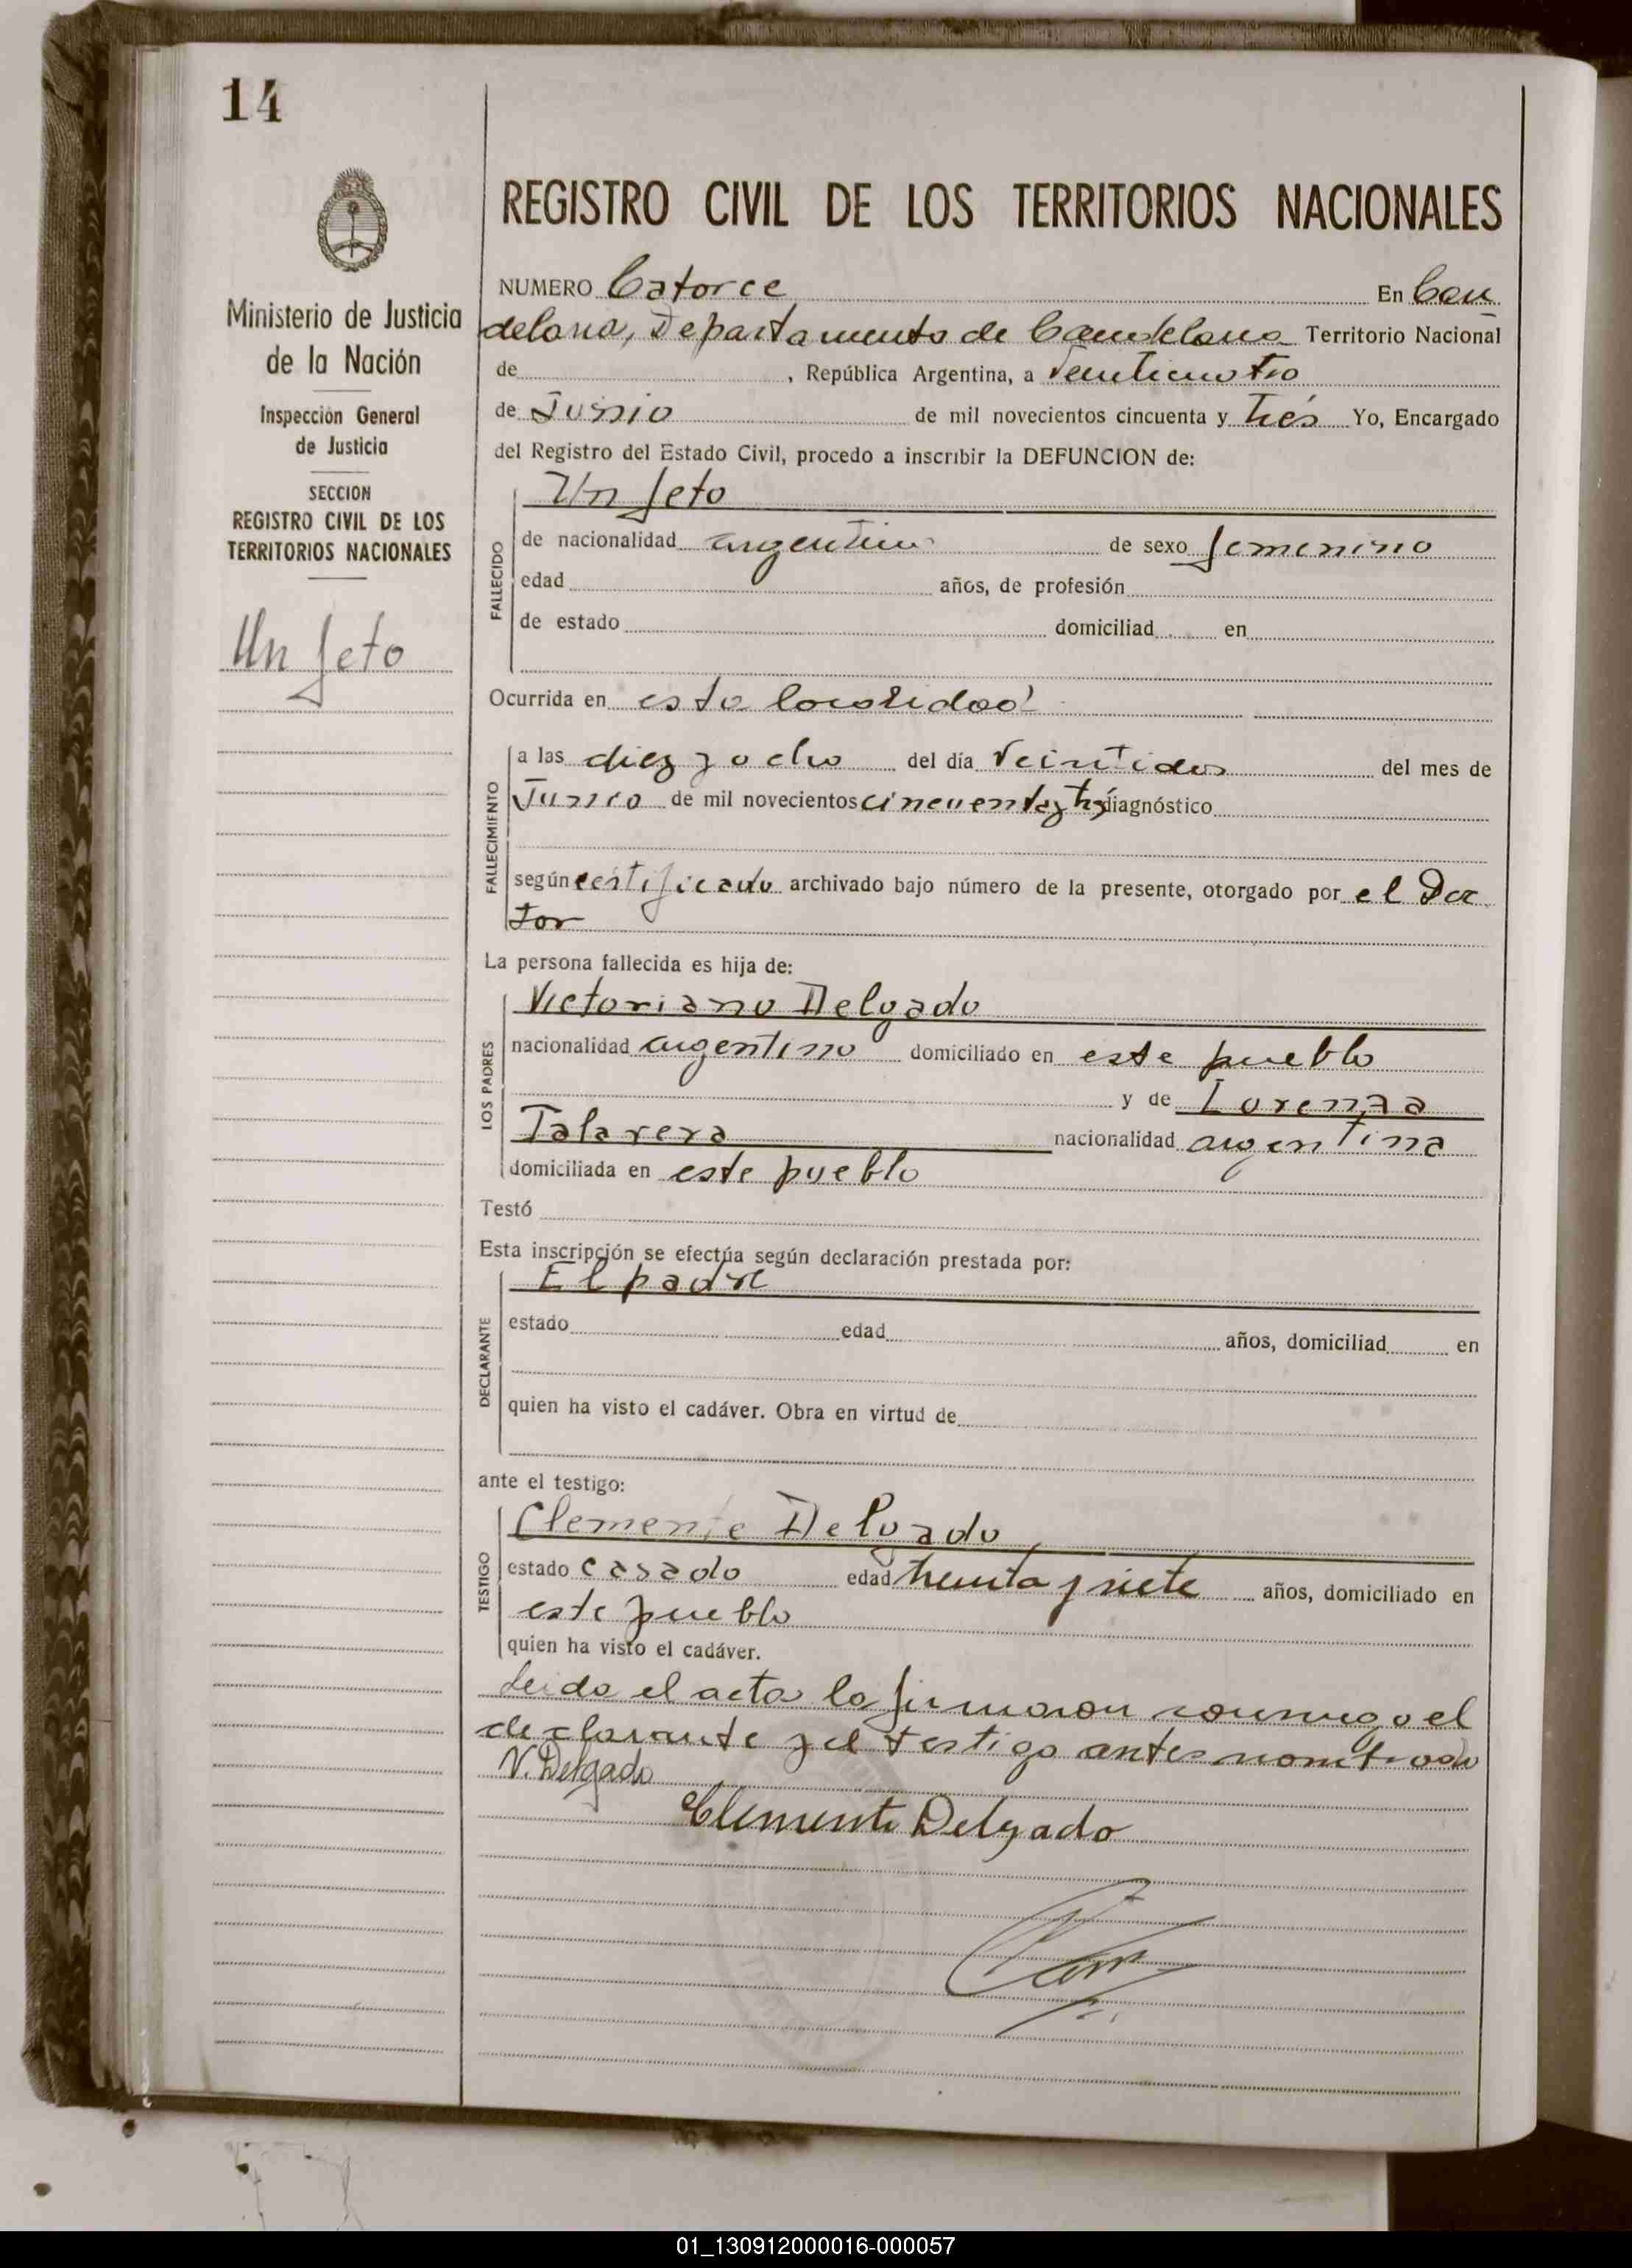 14
REGISTRO CIVIL DE LOS TERRITORIOS NACIONALES
Ministerio de Justicia
de la Nación
Inspección General
de Justicia
SECCION
REGISTRO CIVIL DE LOS
TERRITORIOS NACIONALES
Un feto
NUMERO Catorce En Can
delaria, Departamento de Candelaria Territorio Nacional
de , República Argentina, a Veinticuatro
de Junio de mil novecientos cincuenta y trés Yo, Encargado
del Registro del Estado Civil, procedo a inscribir la DEFUNCION de:
Un feto
FALLECIDO
de nacionalidad argentino de sexo femenino
edad años, de profesión
de estado domiciliad en
Ocurrida en esta localidad
FALLECIMIENTO
a las diez y ocho del día Veintidos del mes de
Junio de mil novecientos cincuenta y trés diagnóstico
según certificado archivado bajo número de la presente, otorgado por el Doc
tor
La persona fallecida es hija de:
LOS PADRES
Victoriano Delgado
nacionalidad argentino domiciliado en este pueblo
y de Lorenza
Talavera nacionalidad argentina
domiciliada en este pueblo
Testó
Esta inscripción se efectúa según declaración prestada por:
DECLARANTE
El padre
estado edad años, domiciliad en
quien ha visto el cadáver. Obra en virtud de
ante el testigo:
TESTIGO
Clemente Delgado
estado casado edad treinta y siete años, domiciliado en
este pueblo
quien ha visto el cadáver.
Leida el acta la firmaron conmigo el
declarante y el testigo antes nombrado
V. Delgado
Clemente Delgado
01_130912000016-000057